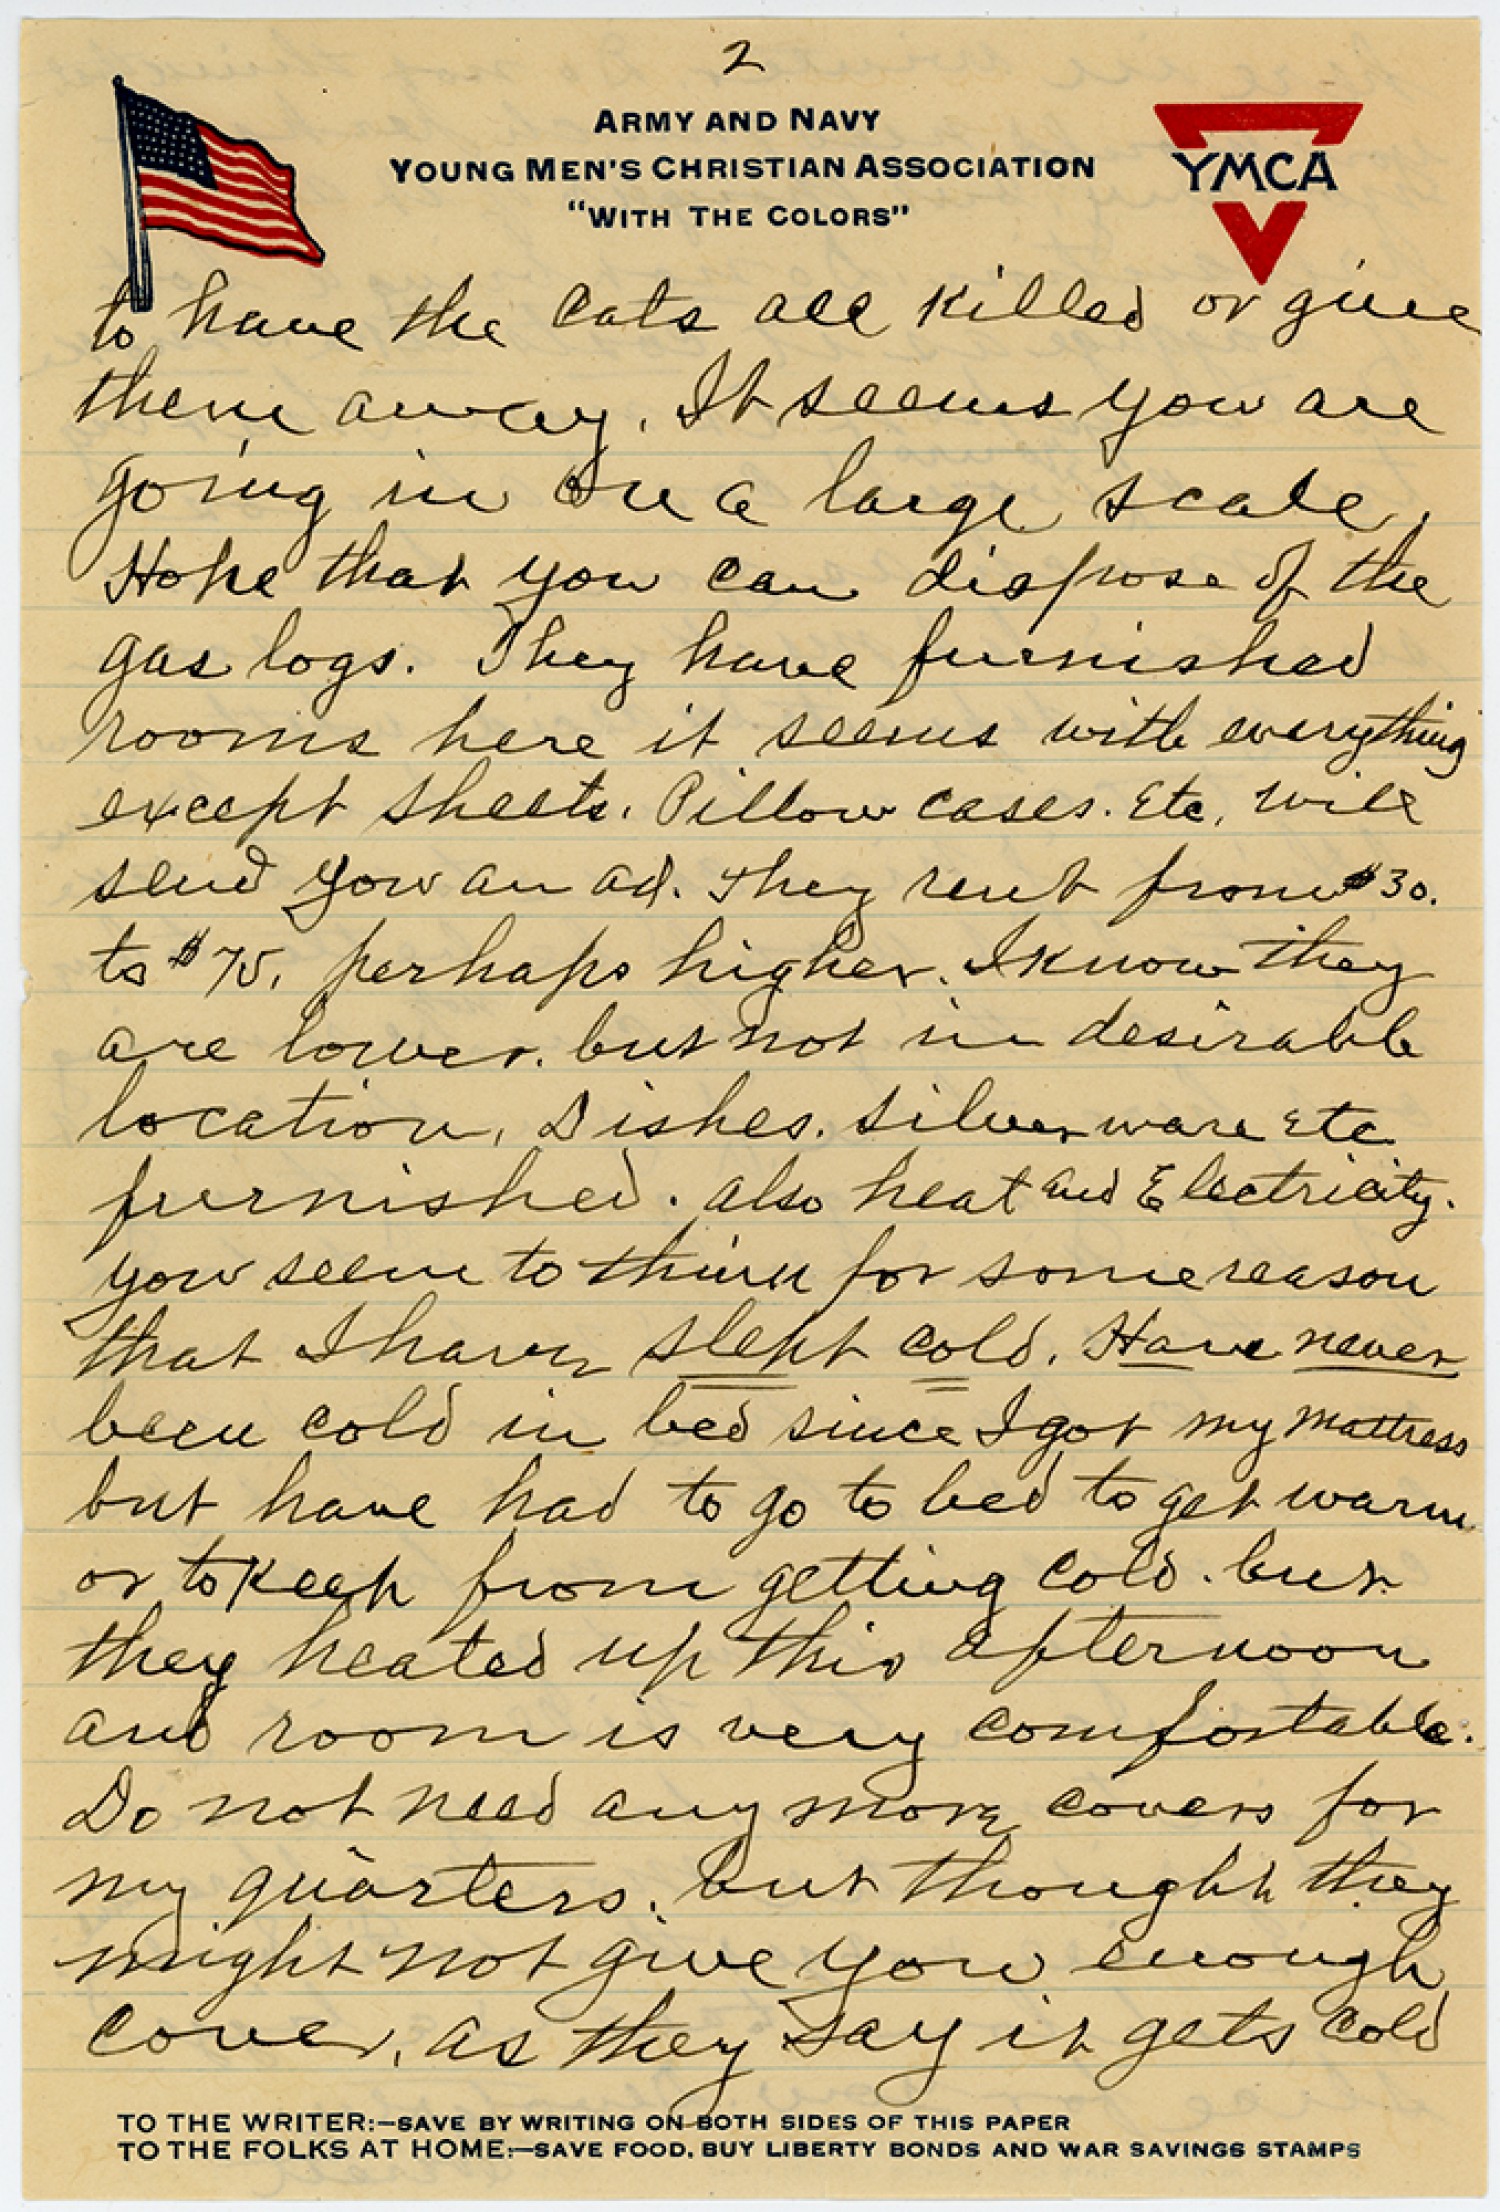 2
ARMY AND NAVY
YOUNG MEN'S CHRISTIAN ASSOCIATION
"WITH THE COLORS"
YMCA
to have the cats all killed or give
them away. It seems you are
going in on a large scale.
Hope that you can dispose of the
gas logs. They have furnished
rooms here it seems with everything
except sheets. Pillow cases. Etc. will
send you an ad. They rent from $30.
to $75. perhaps higher. I know they
are lower. but not in desirable
location. Dishes. silverware etc
furnished. also heat and Electricity.
you seem to think for some reason
that I have slept cold. Have never
been cold in bed since I got my mattress
but have had to go to bed to get warm
or to keep from getting cold. but
they heated up this afternoon
and room is very comfortable.
Do not need any more covers for
my quarters. but thought they
might not give you enough
cover. as they say it gets cold
TO THE WRITER:—SAVE BY WRITING ON BOTH SIDES OF THIS PAPER
TO THE FOLKS AT HOME:—SAVE FOOD, BUY LIBERTY BONDS AND WAR SAVINGS STAMPS